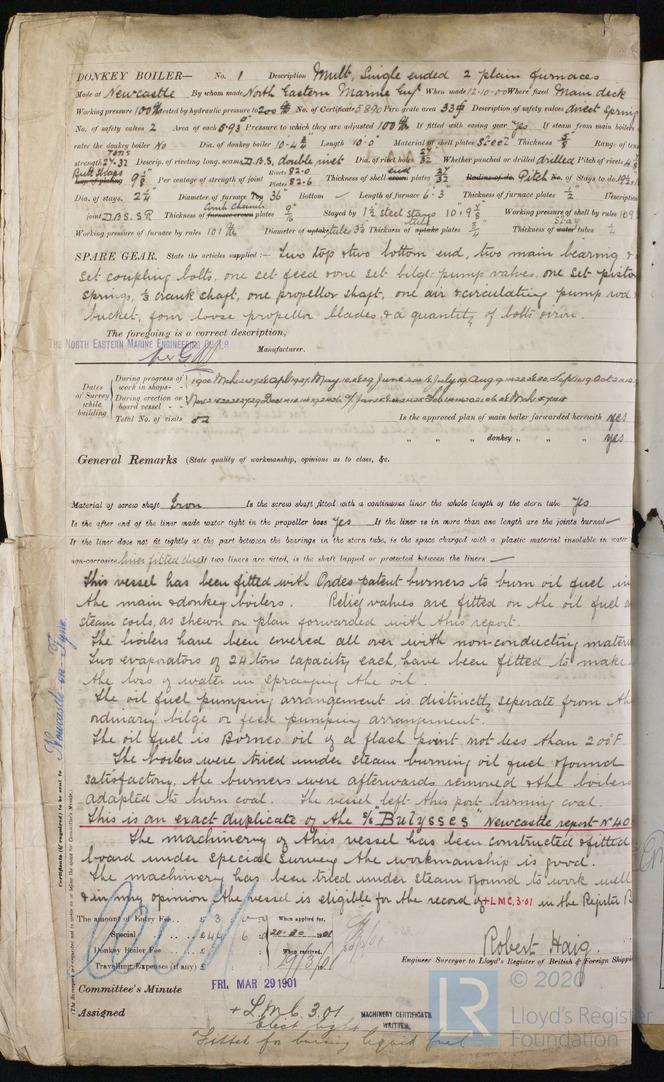 DONKEY BOILER— No. 1 Description Mult, Single ended 2 plain furnaces
Made at Newcastle By whom made North Eastern Marine Engg When made 12-10-00 Where fixed Main deck
Working pressure 100 lb tested by hydraulic pressure to 200 lb No. of Certificate 5890 Fire grate area 33 Description of safety valves direct Spring
No. of safety valves 2 Area of each 5.93 Pressure to which they are adjusted 100 lb If fitted with easing gear yes If steam from main boilers
enter the donkey boiler No Dia. of donkey boiler 10-4 Length 10-0 Material of shell plates Steel Thickness 5/8 Range of tens
strength 27-32 tons Descrip. of riveting long. seams D.B.S. double rivet Dia. of rivet holes 27/32 Whether punched or drilled drilled Pitch of rivets
Butt straps 9 Per centage of strength of joint Rivets 82.0 Plates 82.6 Thickness of shell end plates 27/32 Pitch No. of Stays to do.
Dia. of stays. 2 1/4 Diameter of furnace Top 36" Bottom — Length of furnace 6-3 Thickness of furnace plates 1/2 Description
joint D.B.S.S.R Thickness of comb chamb plates 9/16 Stayed by 1 1/2 steel stays Working pressure of shell by rules 109
Working pressure of furnace by rules 101 lb Diameter of tubes 3 1/2 Thickness of tube plates 3/4 Thickness of stay tubes 1/4
SPARE GEAR. State the articles supplied:— Two top & two bottom end, two main bearing & a
set coupling bolts, one set feed & one set bilge pump valves, one set piston
springs, 1/3 crank shaft, one propellor shaft, one air & circulating pump rod &
bucket, four loose propellor blades & a quantity of bolts & iron.
The foregoing is a correct description,
THE NORTH EASTERN MARINE ENGINEERING Co LD
Manufacturer.
Dates of Survey while building
During progress of work in shops--
During erection on board vessel---
Total No. of visits 52 Is the approved plan of main boiler forwarded herewith yes
" " " donkey " " " yes
General Remarks (State quality of workmanship, opinions as to class, &c.
Material of screw shaft Iron Is the screw shaft fitted with a continuous liner the whole length of the stern tube yes
Is the after end of the liner made water tight in the propeller boss yes If the liner is in more than one length are the joints burned —
If the liner does not fit tightly at the part between the bearings in the stern tube, is the space charged with a plastic material insoluble in water
non-corrosive liner fitted If two liners are fitted, is the shaft lapped or protected between the liners —
This vessel has been fitted with Ordes patent burners to burn oil fuel in
the main & donkey boilers. Relief valves are fitted on the oil fuel a
steam coils, as shewn on plan forwarded with this report.
The boilers have been covered all over with non-conducting materi
Two evaporators of 24 tons capacity each, have been fitted to make
the loss of water in spraying the oil.
The oil fuel pumping arrangement is distinctly seperate from the
ordinary bilge or feed pumping arrangement.
The oil fuel is Borneo oil of a flash point not less than 200°F
The boilers were tried under steam burning oil fuel & found
satisfactory, the burners were afterwards removed & the boilers
adapted to burn coal. The vessel left this port burning coal.
This is an exact duplicate of the S/S "Bulysses" Newcastle report No 40
The machinery of this vessel has been constructed & fitted
board under special survey the workmanship is good.
The machinery has been tried under steam & found to work well
& in my opinion the vessel is eligible for the record of + L.M.C. 3.01 in the Register B
Certificate (if required) to be sent to Newcastle-on-Tyne
The amount of Entry Fee .. £ 3 When applied for,
Special .. £ 44 6 1901
Donkey Boiler Fee .. £ When received,
Travelling Expenses (if any) £
Robert Haig
Engineer Surveyor to Lloyd's Register of British & Foreign Shipping
Committee's Minute FRI. MAR 29 1901
Assigned + L.M.C. 3.01
Elect. light
Fitted for burning liquid fuel
MACHINERY CERTIFICATE
WRITTEN
LR
© 2020
Lloyd's Register
Foundation